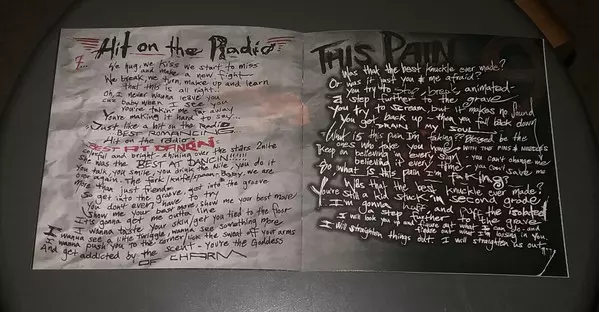 Hit on the Radio
7...
We hug, we kiss we start to miss
and make a new fight
We break we turn, make up and learn
that this is all right
Oh, I never wanna leave you
cus baby when I see you
you're takin' my
You're making it hard to say...
Just like a hit on the radio
BEST ROMANCING
Hit on the radio
BEST ART DANCIN
colorful and bright - shining over the stars 2nite
She was the BEST DANCIN'!!!!!
You talk, you smile, you drink the Nile you do it
again. The Kirk/knife/Human Baby, we are
More than just friends
So get into the groove, got into the groove
You don't even have to show me your best move!
Show me your back move
It's gonna get me outta line
I wanna taste your skin/get you tied to the floor
I wanna see a little twinkle/wanna see something more.
I wanna push you to the corner/lick the sweat off your arms
And get addicted by the scent - you're the Goddess
OF CHARM
THIS PAIN
Was that the best knuckle ever made?
Or was it just you & me afraid?
You try to break, animated -
a step further to the grave
You try to scream, but it makes no sound
You get back up - then you fall back down
soul
What is this pain I'm taking? Blessed be the
ones who take you with the pins & needles
Keep on believing every sign - you can't change me
believing it every time - you can't save
So what is this pain I'm taking?
Was that the best knuckle ever made?
You're still out stuck in second grade
I'm gonna kick and puff the isolated
I will look a step further to the grave
figure out what I can do - and
figure out what I'm losing in you.
I will straighten things out. I will straighten us out...